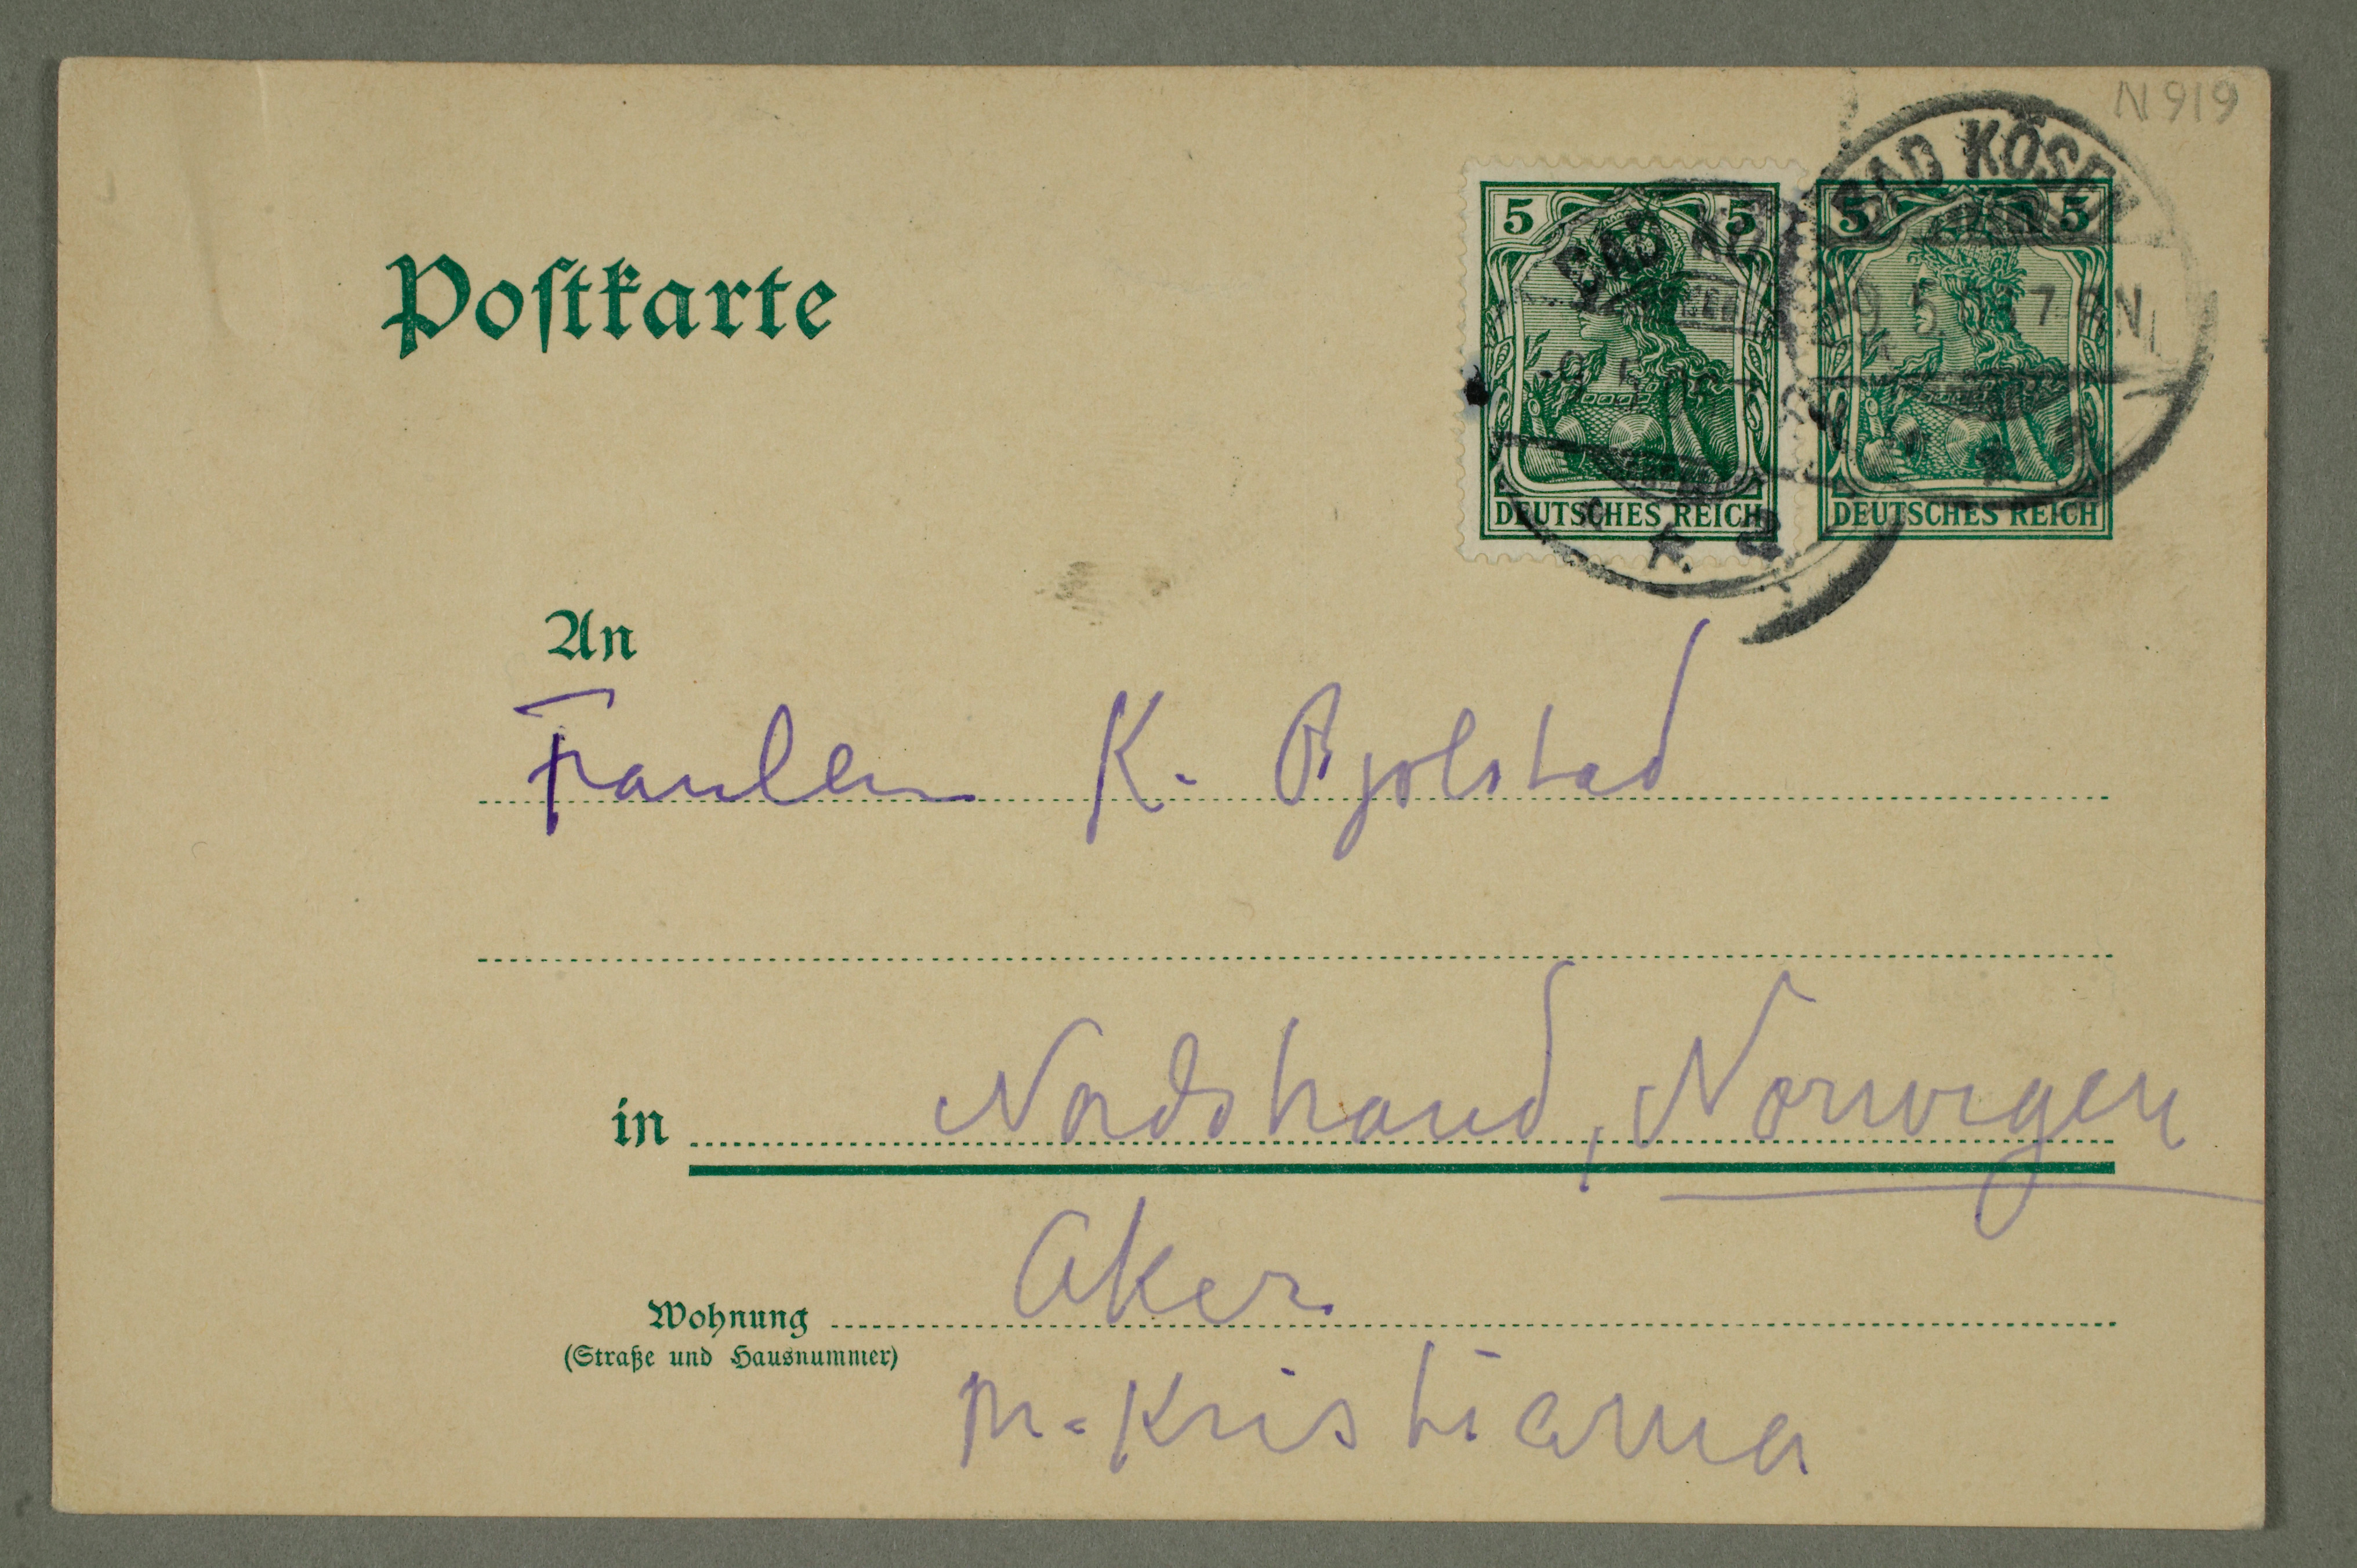 N 919
BAD KÖSEN
5 5
5 5
DEUTSCHES REICH
DEUTSCHES REICH
Postkarte
An
Fraulein K. Bjolstad
in Nordstrand, Norwegen
Aker
Wohnung
(Straße und Hausnummer)
pr. Kristiania